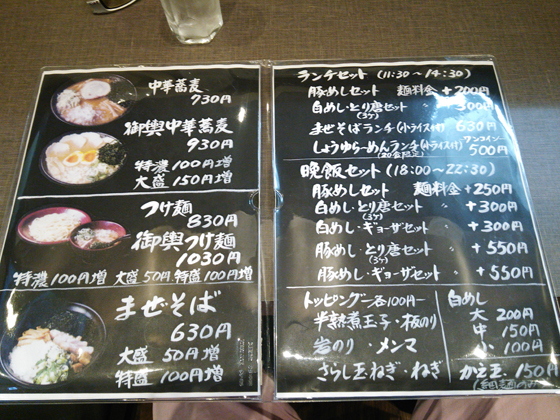 中華蕎麦
730円
御輿中華蕎麦
930円
特濃 100円増
大盛 150円増
つけ麺
830円
御輿つけ麺
1030円
特濃100円増 大盛50円増 特盛100円増
まぜそば
630円
大盛 50円増
特盛 100円増
ランチセット (11:30〜14:30)
豚めしセット 麺料金+200円
白めし・とり唐セット 〃 +300円
(3ケ)
まぜそばランチ(小ライス付) 630円
しょうゆらーめんランチ(小ライス付) ワンコイン 500円
(20食限定)
晩飯セット (18:00〜22:30)
豚めしセット 麺料金+250円
白めし・とり唐セット 〃 +300円
(3ケ)
白めし・ギョーザセット 〃 +300円
豚めし・とり唐セット 〃 +550円
(3ケ)
豚めし・ギョーザセット 〃 +550円
トッピング一各100円一
半熟煮玉子・板のり
岩のり・メンマ
さらし玉ねぎ・ねぎ
白めし
大 200円
中 150円
小 100円
かえ玉・150円